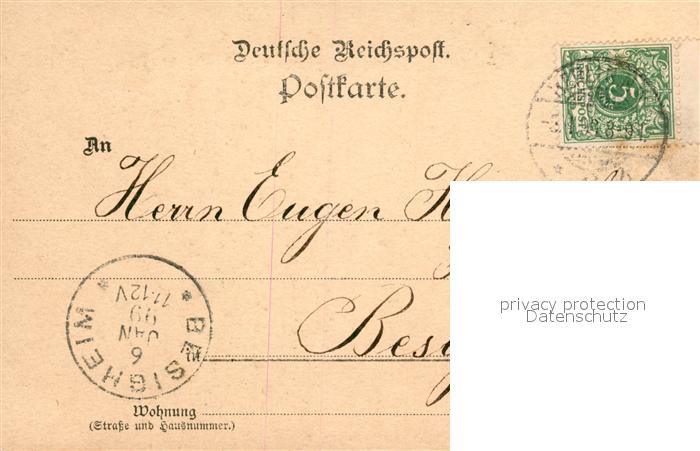 Deutsche Reichspost.
Postkarte.
An
Herrn Eugen H
Bes
in
Wohnung
(Straße und Hausnummer.)
BESIGHEIM
6
JAN
99
11-12V
5
REICHSPOST
privacy protection
Datenschutz